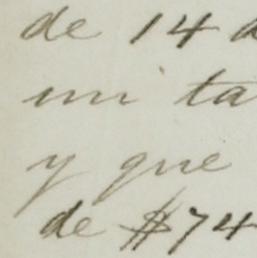 de 14 a
mi ta
y que
de $74